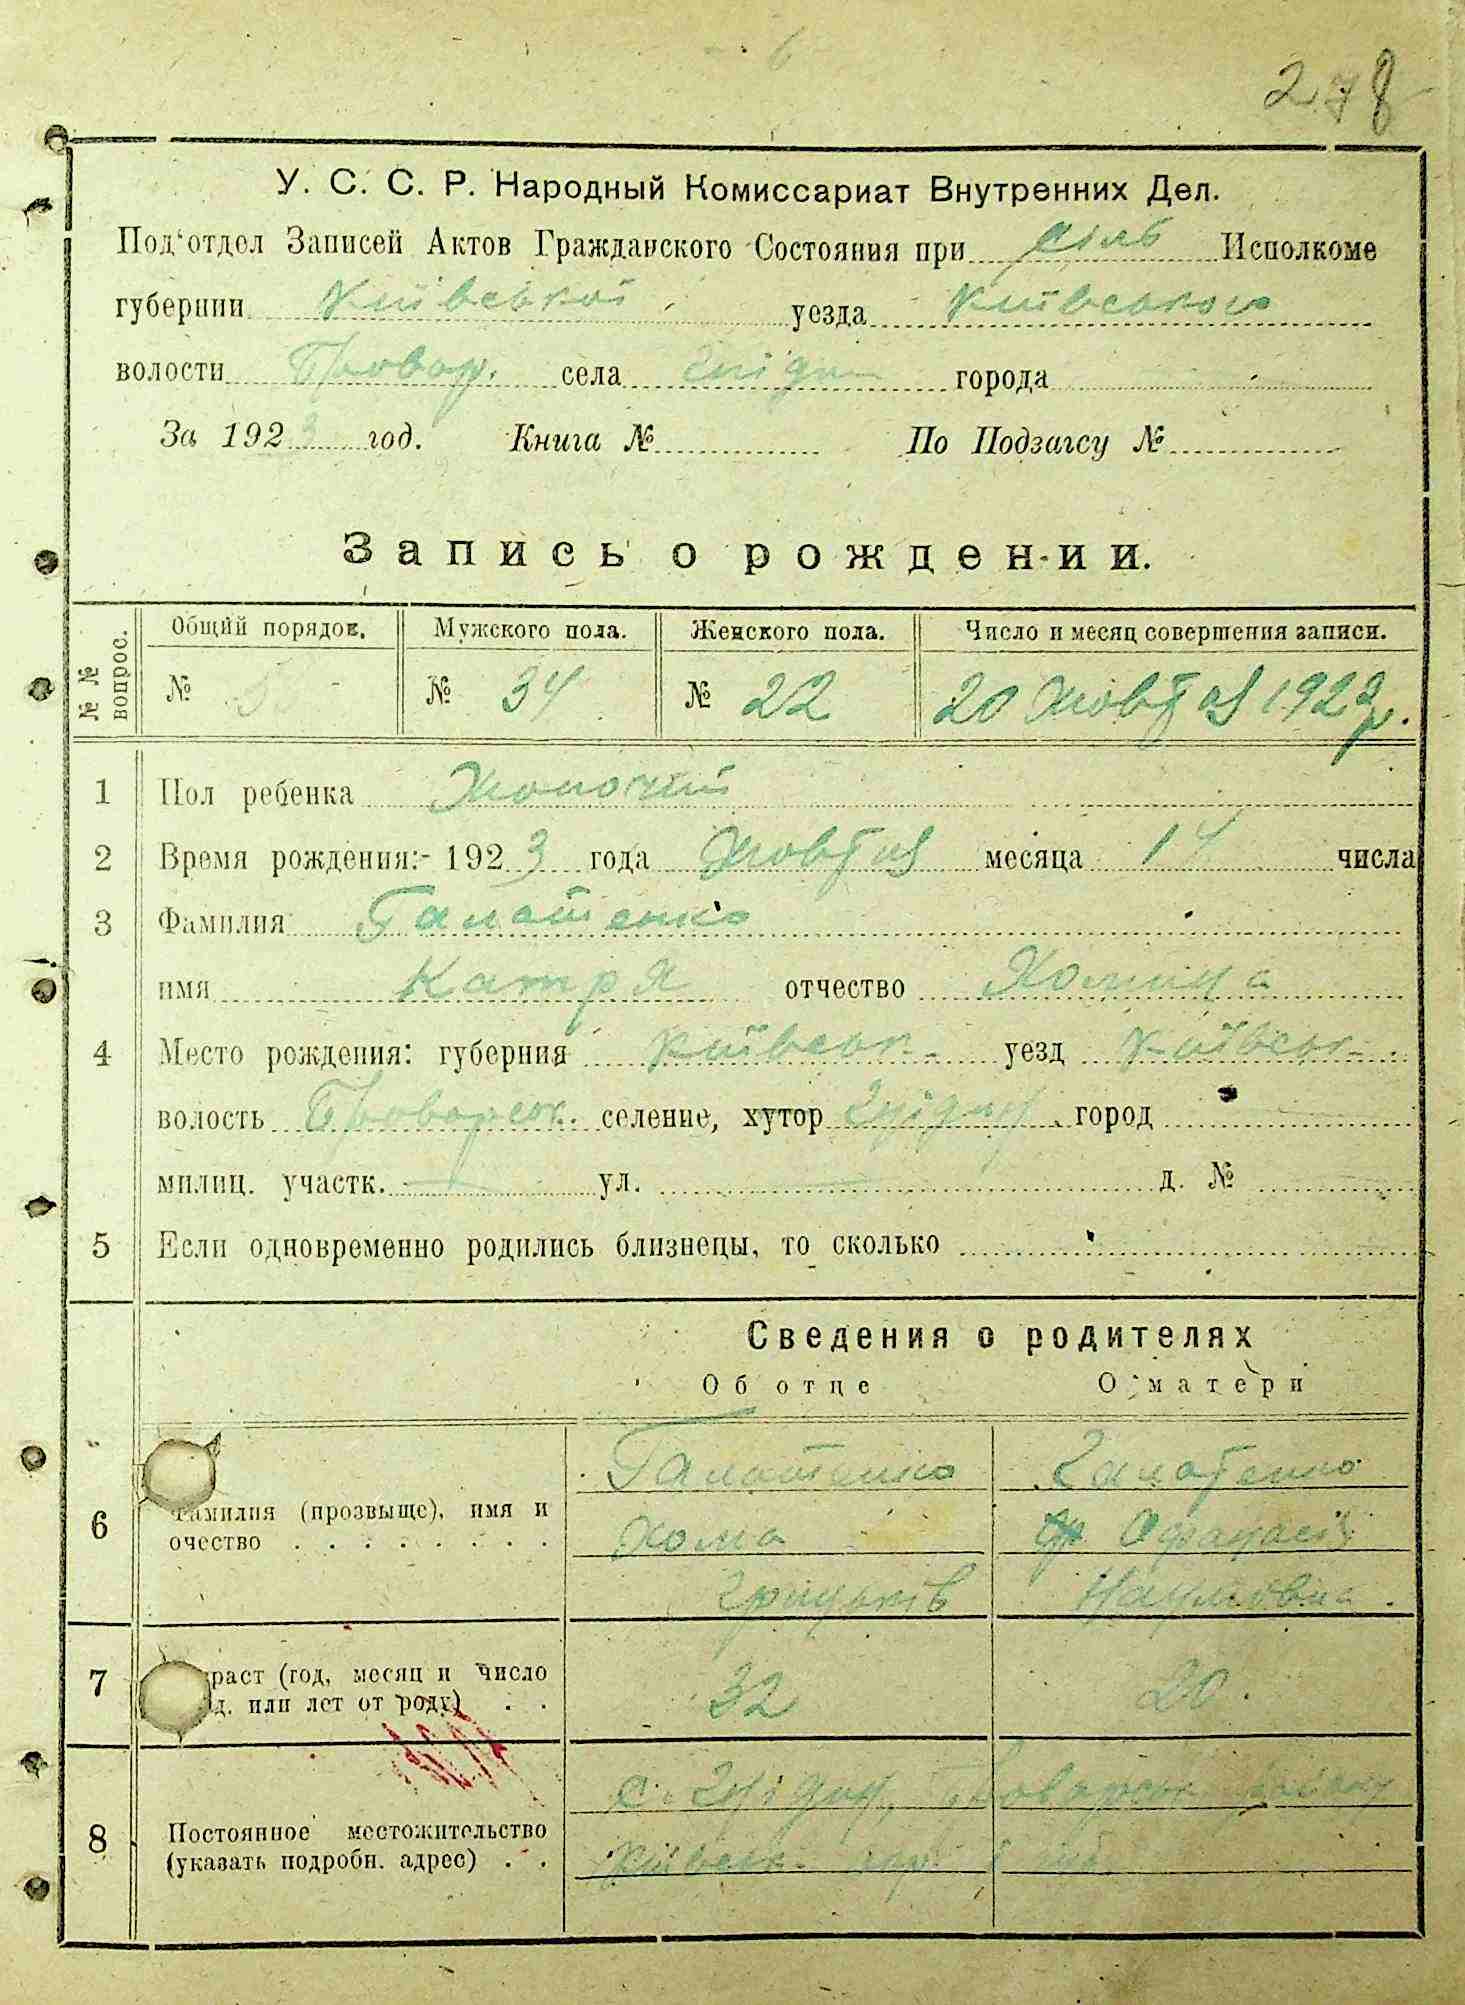 278
У. С. С. Р. Народный Комиссариат Внутренних Дел.
Под'отдел Записей Актов Гражданского Состояния при Сіль Исполкоме
губернии Київської уезда Київського
волости Бровар. села Гнідин города
За 1923 год. Книга № По Подзагсу №
Запись о рождении.
№ № вопрос. Общий порядок. Мужского пола. Женского пола. Число и месяц совершения записи.
№ № 34 № 22 20 Жовтня 1923 р.
1 Пол ребенка Жіночий
2 Время рождения:- 1923 года Жовтня месяца 14 числа
3 Фамилия Галатенко
имя Катря отчество Хомина
4 Место рождения: губерния Київськ. уезд Київськ.
волость Броварськ. селение, хутор Гнідин город
милиц. участк. ул. д. №
5 Если одновременно родились близнецы, то сколько
Сведения о родителях
Об отце О матери
Галатенко Галатенко
6 Фамилия (прозвыще), имя и Хома Офанасія
очество Грицьків Наумовна
7 раст (год, месяц и число 32 20
д. или лет от роду)
с. Гнідин, Броварськ. району
8 Постоянное местожительство
(указать подробн. адрес) Київськ.